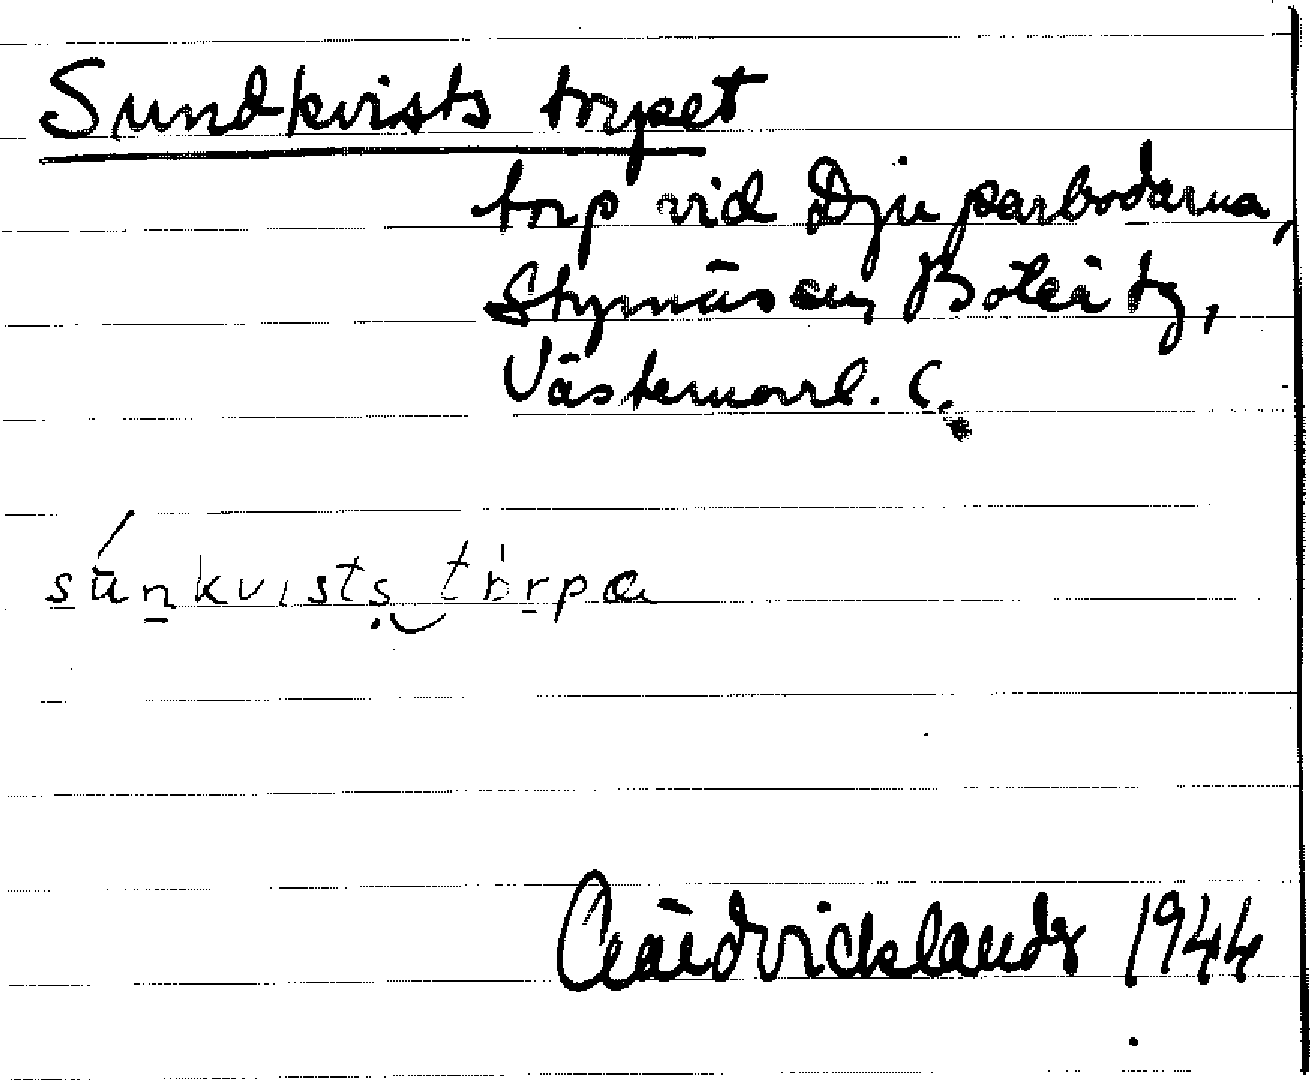 Sundkvists torpet
torp vid Djuparbodarna,
Styrnäs sn, Boteå tg,
Västernorrl.
súnkvists torpa
1944